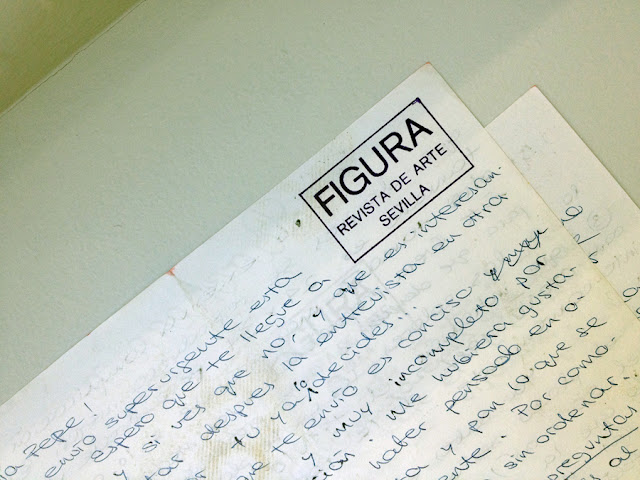 FIGURA
REVISTA DE ARTE
SEVILLA
la Pepe!
envío superurgente esta
espero que te llegue a
y si ves que no, y que es interesan-
tar despues la entrevista en otra
tu ya lo decides...
que te envío es conciso y
y muy incompleto por
ción. Me hubiera gusta-
haber pensado en o-
y pan lo que se
ente. Por como-
sin ordenar...
preguntar
s al